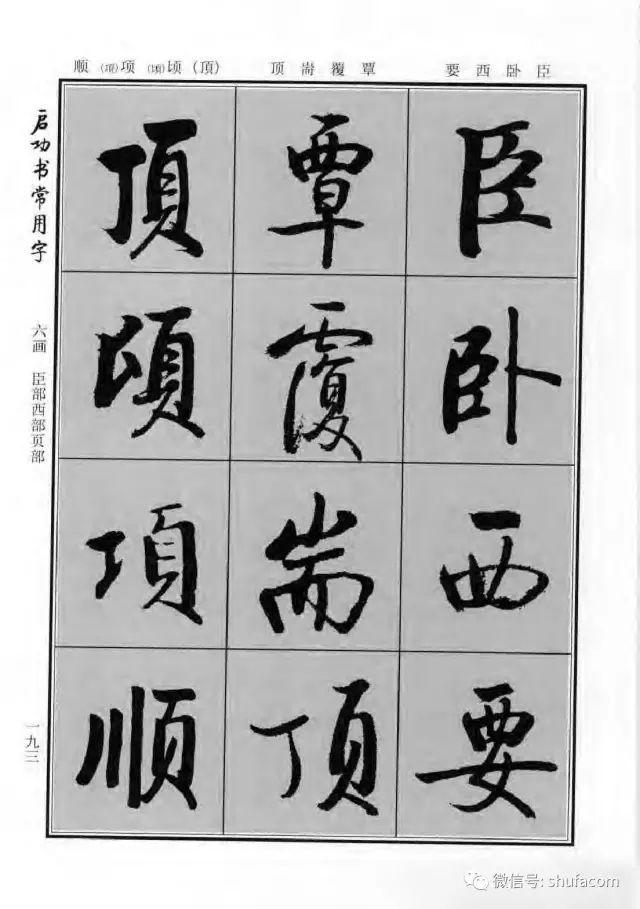 臣卧西要
覃覆耑顶
(頂)顷(頃)项(項)顺
臣
卧
西
要
覃
覆
耑
顶
頂
頃
項
顺
启功书常用字
六画 臣部西部页部
一九三
微信号: shufacom